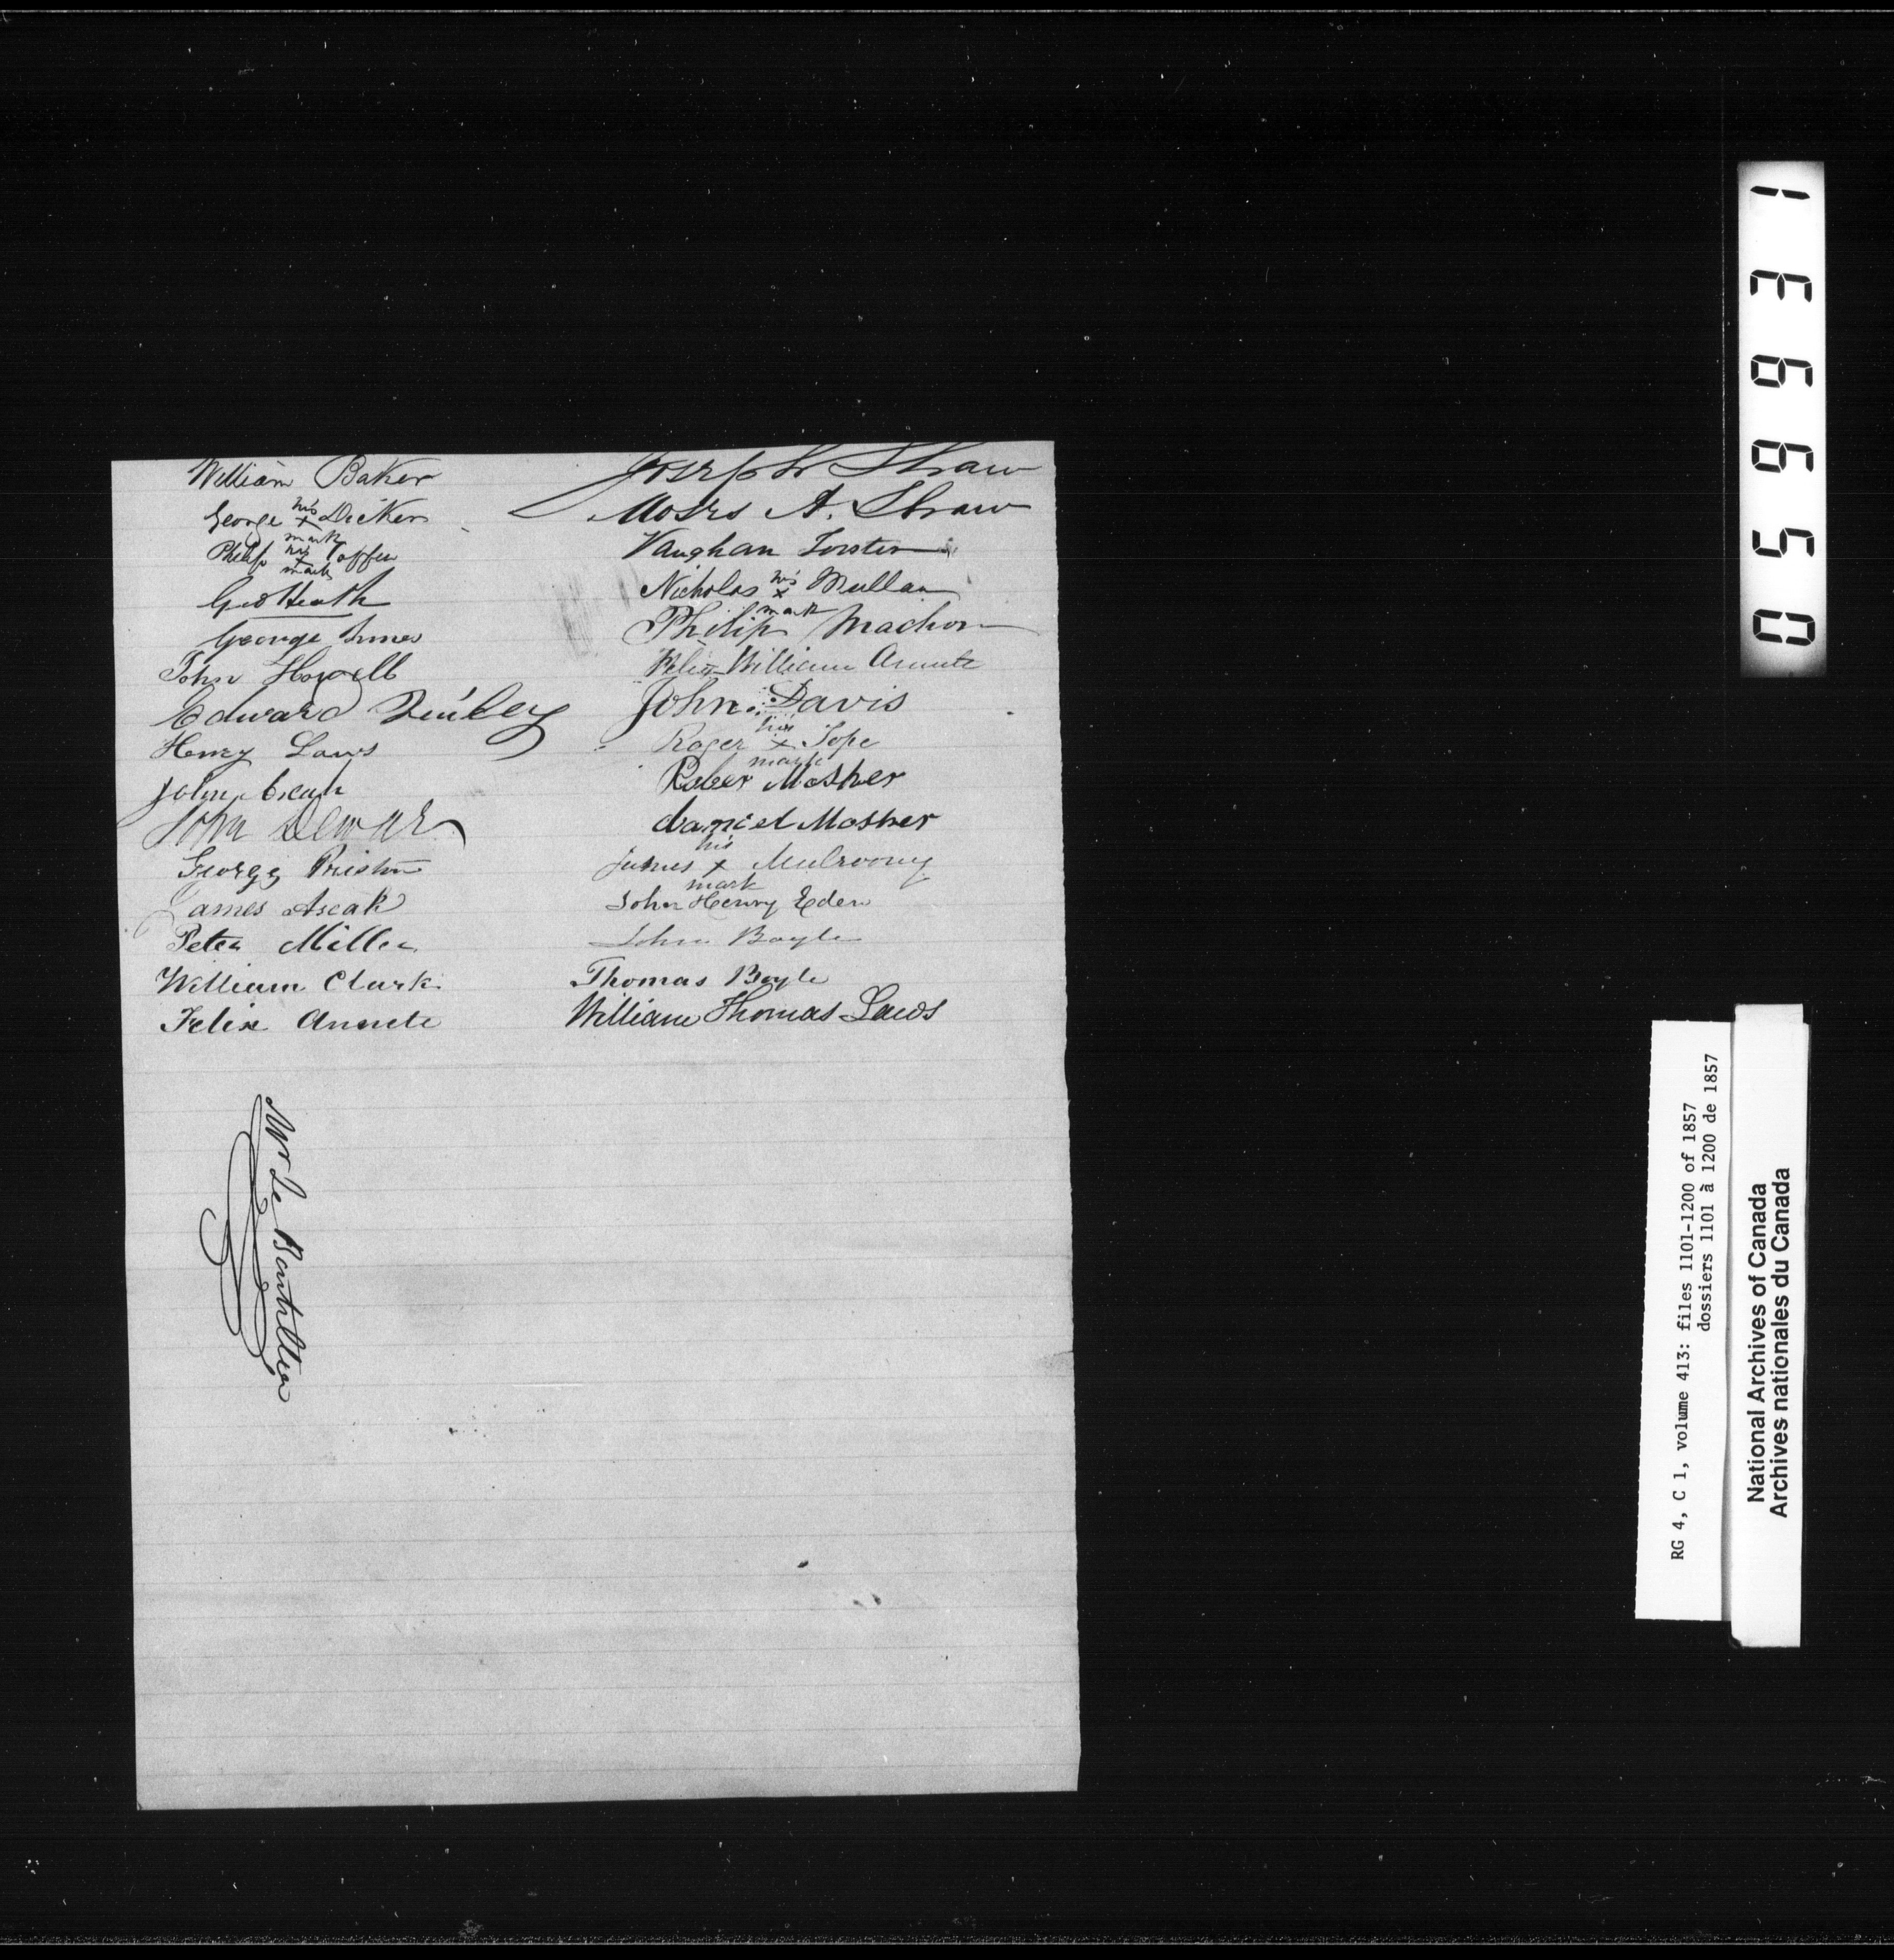 William Baker
George his x mark Dicker
Philip his x mark Toffer
Geo Heath
George
John Howell
Edward
Henry Laws
John
John Dewar
George Prieston
James Ascah
Peter Miller
William Clark
Felix Annete
Joseph Shaw
Moses A. Shaw
Vaughan
Nicholas his x mark Mullan
Philip Machon
Felix William Annete
John Davis
Roger his x mark Tope
Mosher
daniel Mosher
James his x mark Mulroony
John Henry Eden
John Boyle
Thomas Boyle
William Thomas Laws
Mr Le Boutillier
136650
RG 4, C 1, volume 413: files 1101-1200 of 1857
dossiers 1101 à 1200 de 1857
National Archives of Canada
Archives nationales du Canada